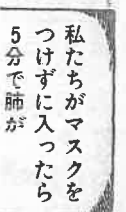 私たちがマスクを
つけずに入ったら
5分で肺が